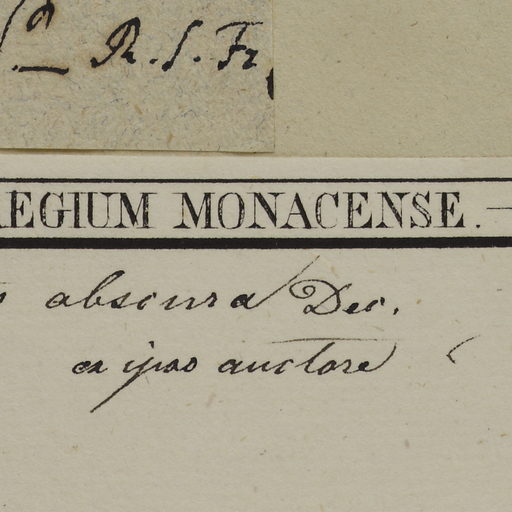 R. S. Fr
REGIUM MONACENSE.
obscura Dec.
ex ipso auctore